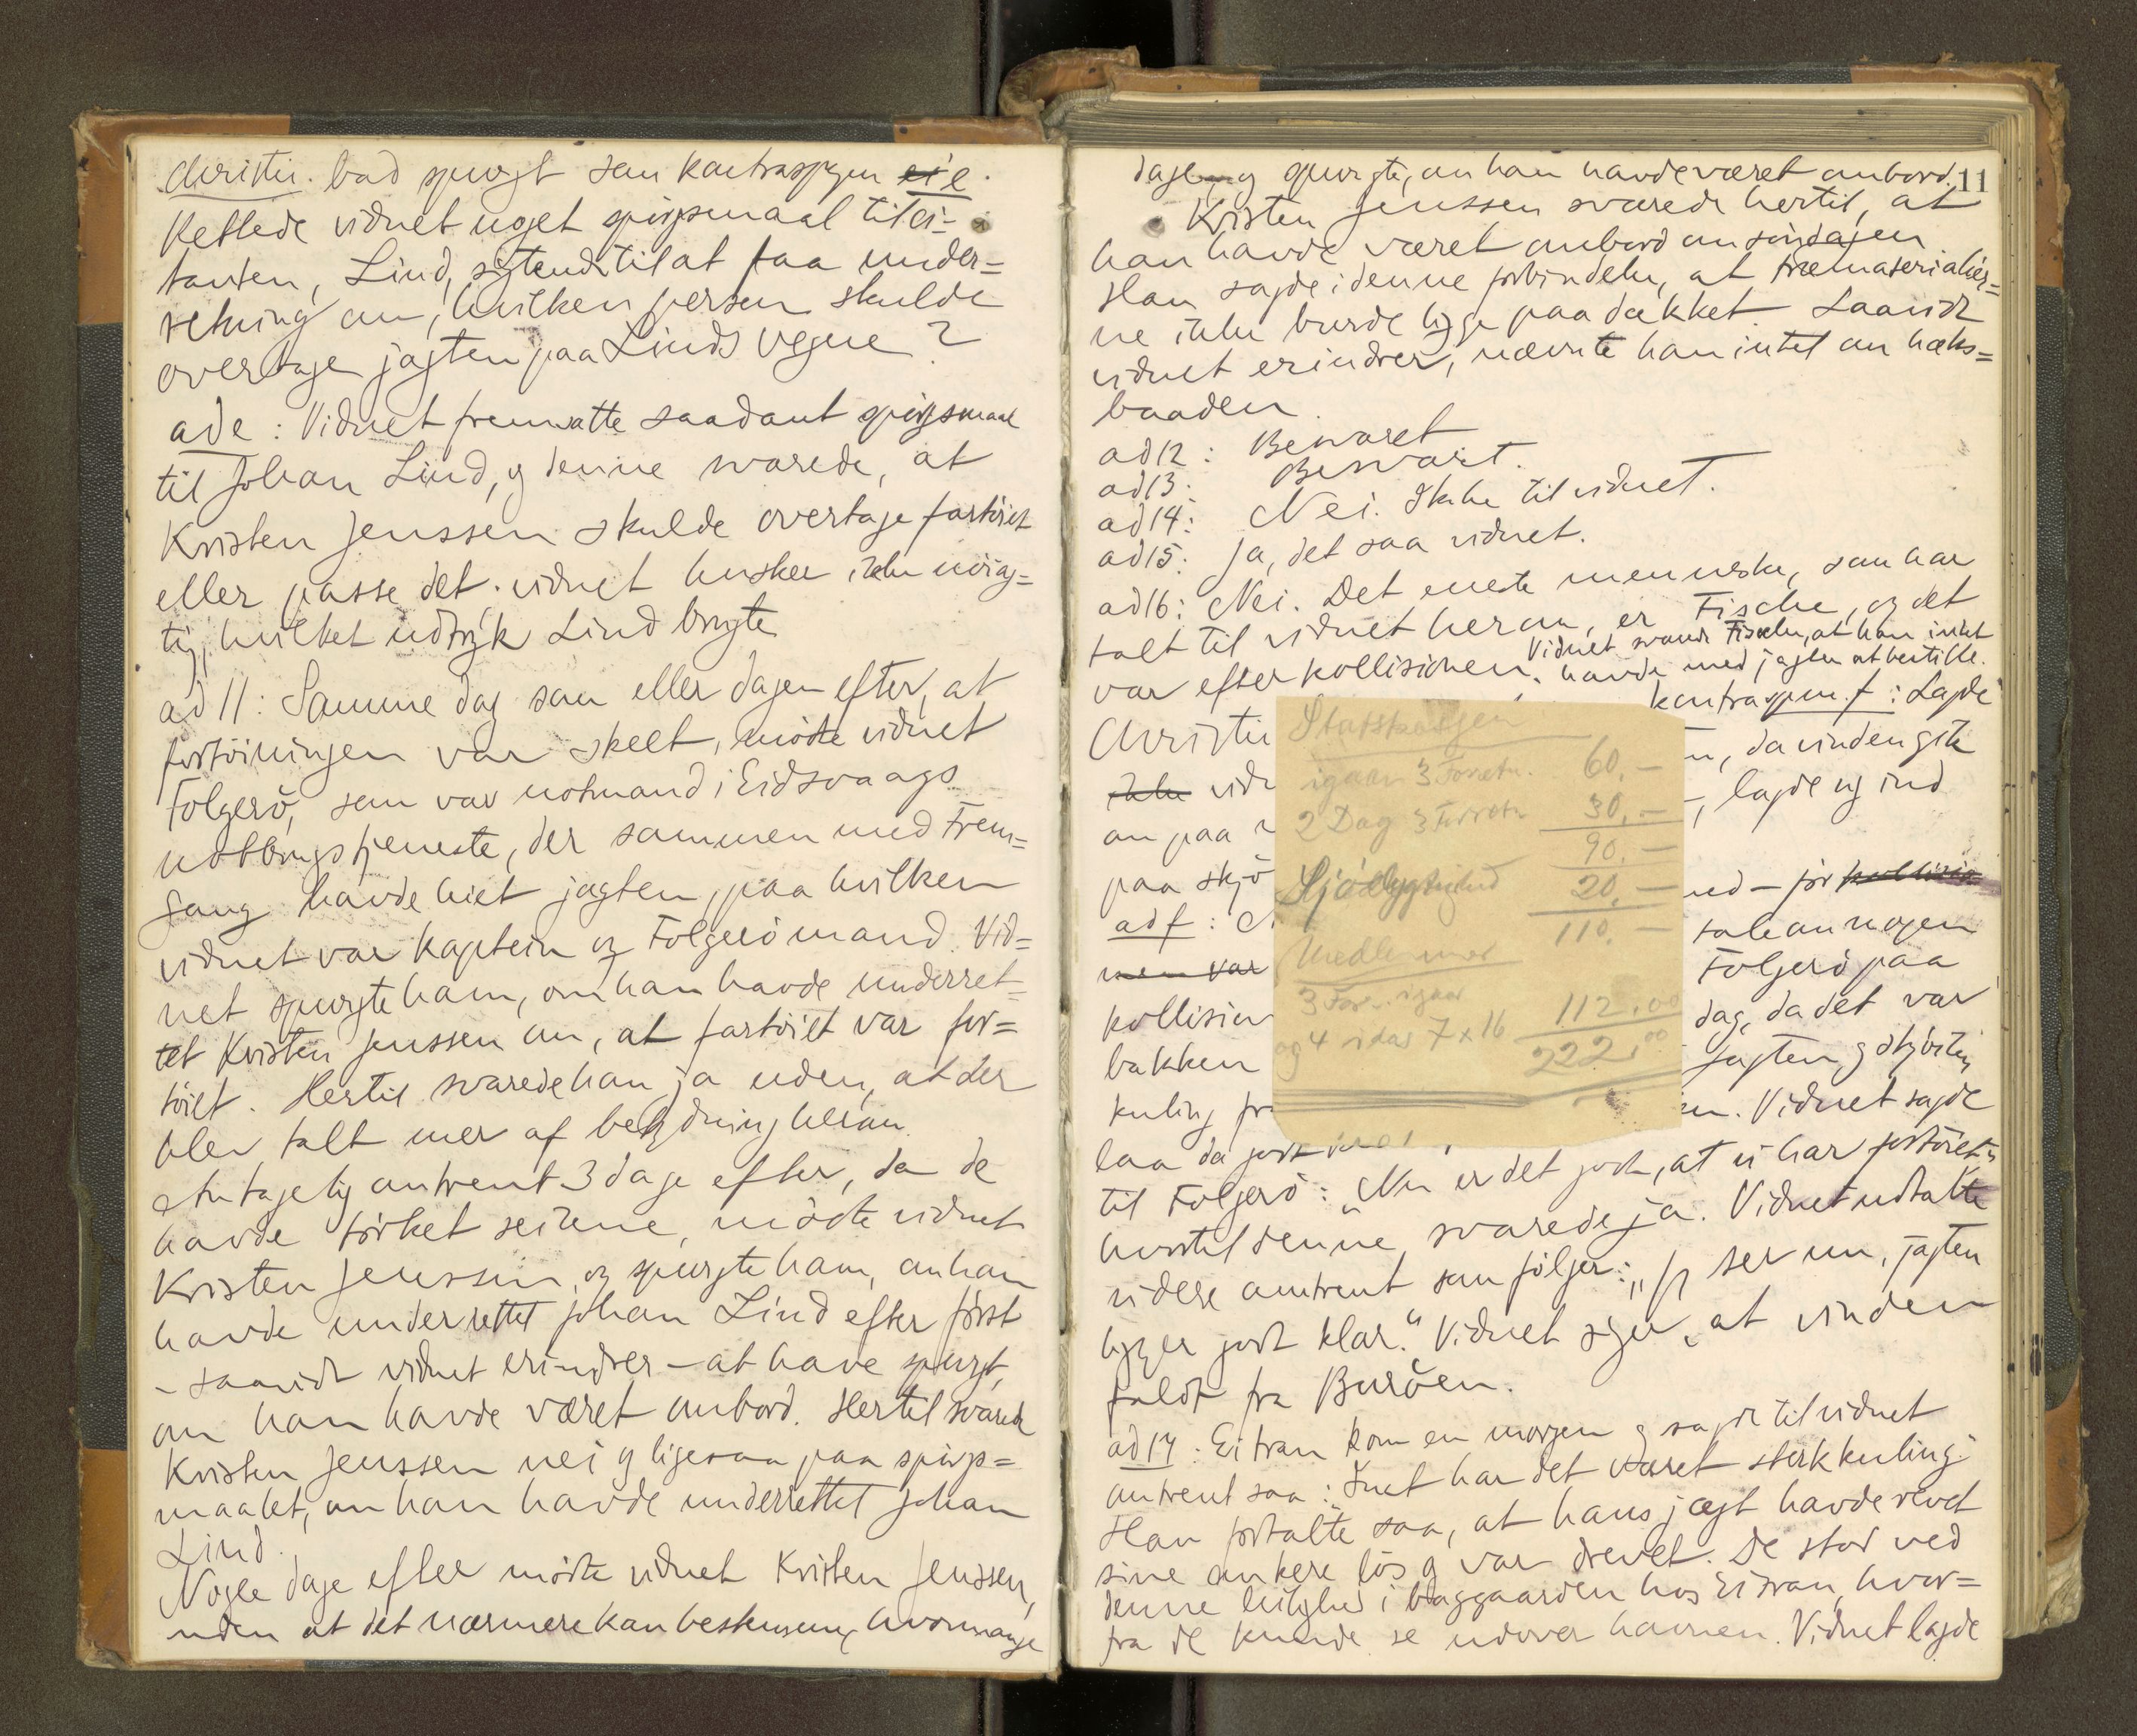 Christie. bad spurgt som kontraspgm e
Rettede vidnet noget spörgsmaal til ci=
tanten, Lind, sigtende til at faa under=
retning om, hvilken person skulde
overtage jagten paa Linds vegne?
ad e: Vidnet fremsatte saadant spörgsmaal
til Johan Lind, og denne svarede, at
Kristen Jenssen skulde overtage fartöiet
eller passe det. vidnet husker ikke nöiag=
tig, hvilket udtryk Lind brugte
ad 11: Samme dag som eller dagen efter, at
fortöiningen var skeet, mödte vidnet
Folgerö, som var notmand i Eidsvaags
notbrugstjeneste, der sammen med Frem=
gang havde leiet jagten, paa hvilken
vidnet var kaptein og Folgerö mand. Vid=
net spurgte ham, om han havde underret=
tet Kristen Jenssen om, at fartöiet var for=
töiet. Hertil svarede han ja uden, at der
blev talt mer af betydning herom.
Antagelig omtrent 3 dage efter, da de
havde törket seilene, mödte vidnet
Kristen Jenssen og spurgte ham, om han
havde underrettet Johan Lind efter först
– saavidt vidnet erindrer – at have spurgt,
om han havde været ombord. Hertil svarede
Kristen Jenssen nei og ligesaa paa spörgs=
maalet, om han havde underrettet Johan
Lind.
Nogle dage efter mödte vidnet Kristen Jenssen,
uden at det nærmere kan bestemme, hvormange
11
dage, og spurgte, om han havde været ombord.
Kristen Jenssen svarede hertil, at
han havde været ombord om söndagen.
Han sagde i denne forbindelse, at træmaterialier=
ne ikke burde ligge paa dækket. Saavidt
vidnet erindrer, nævnte han intet om hæks=
baaden.
ad 12: Besvaret
ad 13: Besvaret.
ad 14: Nei. Ikke til vidnet.
ad 15: Ja, det saa vidnet.
ad 16: Nei. Det eneste menneske, som har
talt til vidnet herom, er Fische, og det
var efter kollisionen. Vidnet svarede Fische, at han intet
havde med jagten at bestille.
Christie kontraspgm. f: Lagde
ikke vidn n, da vinden gik
om paa , lagde og ind
paa skjö ned – för kollisio
ad f: N tale om nogen
men var Folgerö paa
kollision dag, da det var
bakken jagten, og skjöiten
kuling fra en. Vidnet sagde
laa da godt
til Folgerö: "Nu er det godt, at vi har fortöiet",
hvortil denne svarede ja. Vidnet udtalte
videre omtrent som fölger: "Vi ser nu, jagten
ligger godt klar." Vidnet siger, at vinden
faldt fra Buröen.
ad 17: Eitran kom en morgen og sagde til vidnet
omtrent saa: Inat har det været sterk kuling.
Han fortalte saa, at hans jægt havde revet
sine ankere lös og var drevet. De stod ved
denne leilighed i baggaarden hos Eitran, hvor=
fra de kunde se udover havnen. Vidnet lagde
Statskassen
igaar 3 Forretn. 60,-
2 Dag 3 Forretn 30,-
90.-
20.-
110.-
Medlemmer
3 Forr. igaar
og 4 idag 7 x 16 112.00
222,00